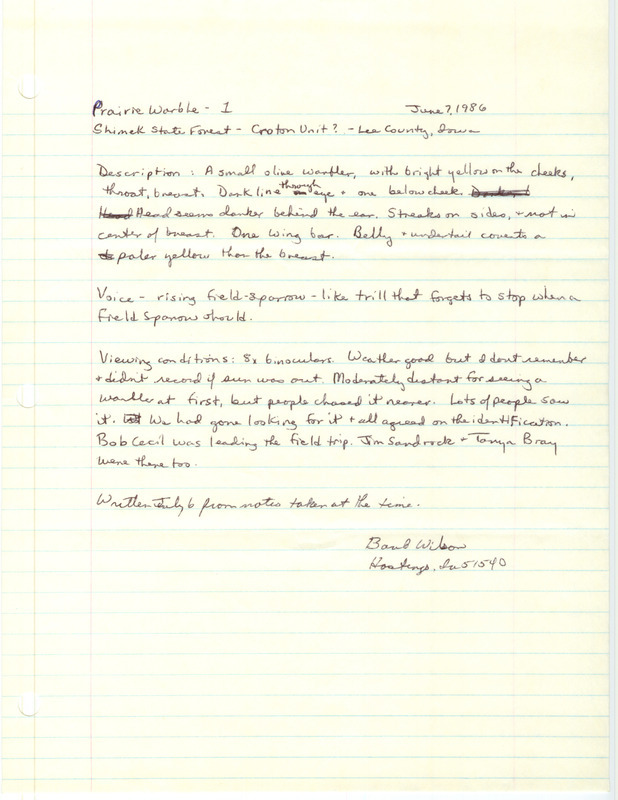 Prairie Warble - 1 June 7, 1986
Shimek State Forest - Croton Unit? - Lee County, Iowa
Description: A small olive warbler, with bright yellow on the cheeks,
throat, breast. Dark line through eye + one below cheek.
Head seems darker behind the ear. Streaks on sides, + not in
center of breast. One wing bar. Belly + undertail coverts a
paler yellow than the breast.
Voice - rising field-sparrow-like trill that forgets to stop when a
Field Sparrow should.
Viewing conditions: 8x binoculars. Weather good but I dont remember
+ didn't record if sun was out. Moderately distant for seeing a
warbler at first, but people chased it nearer. Lots of people saw
it. We had gone looking for it + all agreed on the identification.
Bob Cecil was leading the field trip. Jim Sandrock + Tanya Bray
were there too.
Written July 6 from notes taken at the time.
Barb Wilson
Hastings, Ia 51540